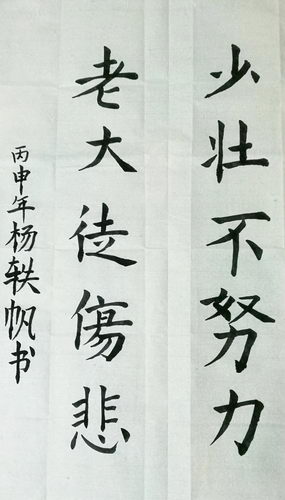 少壮不努力
老大徒傷悲
丙申年杨轶帆书